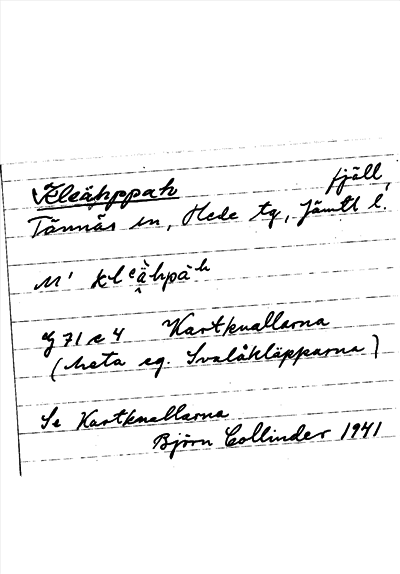 Kleähppah fjäll,
Tännäs sn, Hede tg, Jämtl l.
M' kleähpàh
G 71 e 4 Kartknallarna
(Meta eg. Svalåkläpparna)
Se Kartknallarna
Björn Collinder 1941